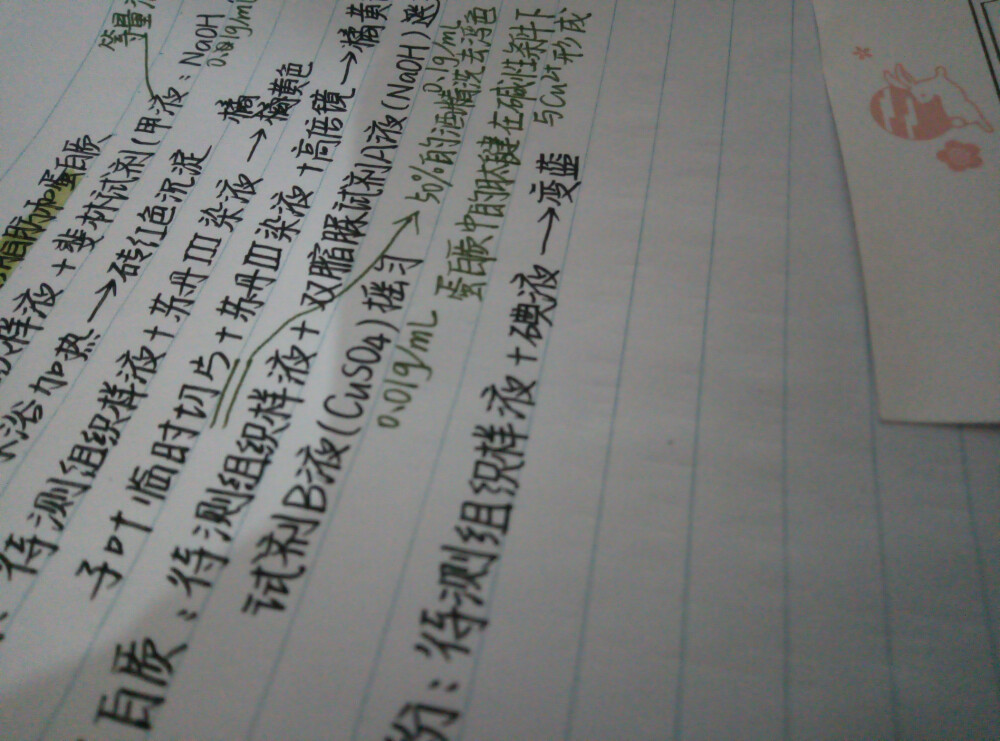 等量
NaOH
0.01g/mL
脂肪和蛋白质
样液+斐林试剂(甲液:
浴加热→砖红色沉淀
橘
待测组织样液+苏丹III染液→橘黄色
子叶临时切片+苏丹III染液+高倍镜→橘黄
白质:待测组织样液+双缩脲试剂A液(NaOH)
0.1g/mL
试剂B液(CuSO4)摇匀
50%的酒精洗去浮色
0.01g/mL
蛋白质中的肽键在碱性条件下
与Cu²⁺形成
份:待测组织样液+碘液→变蓝